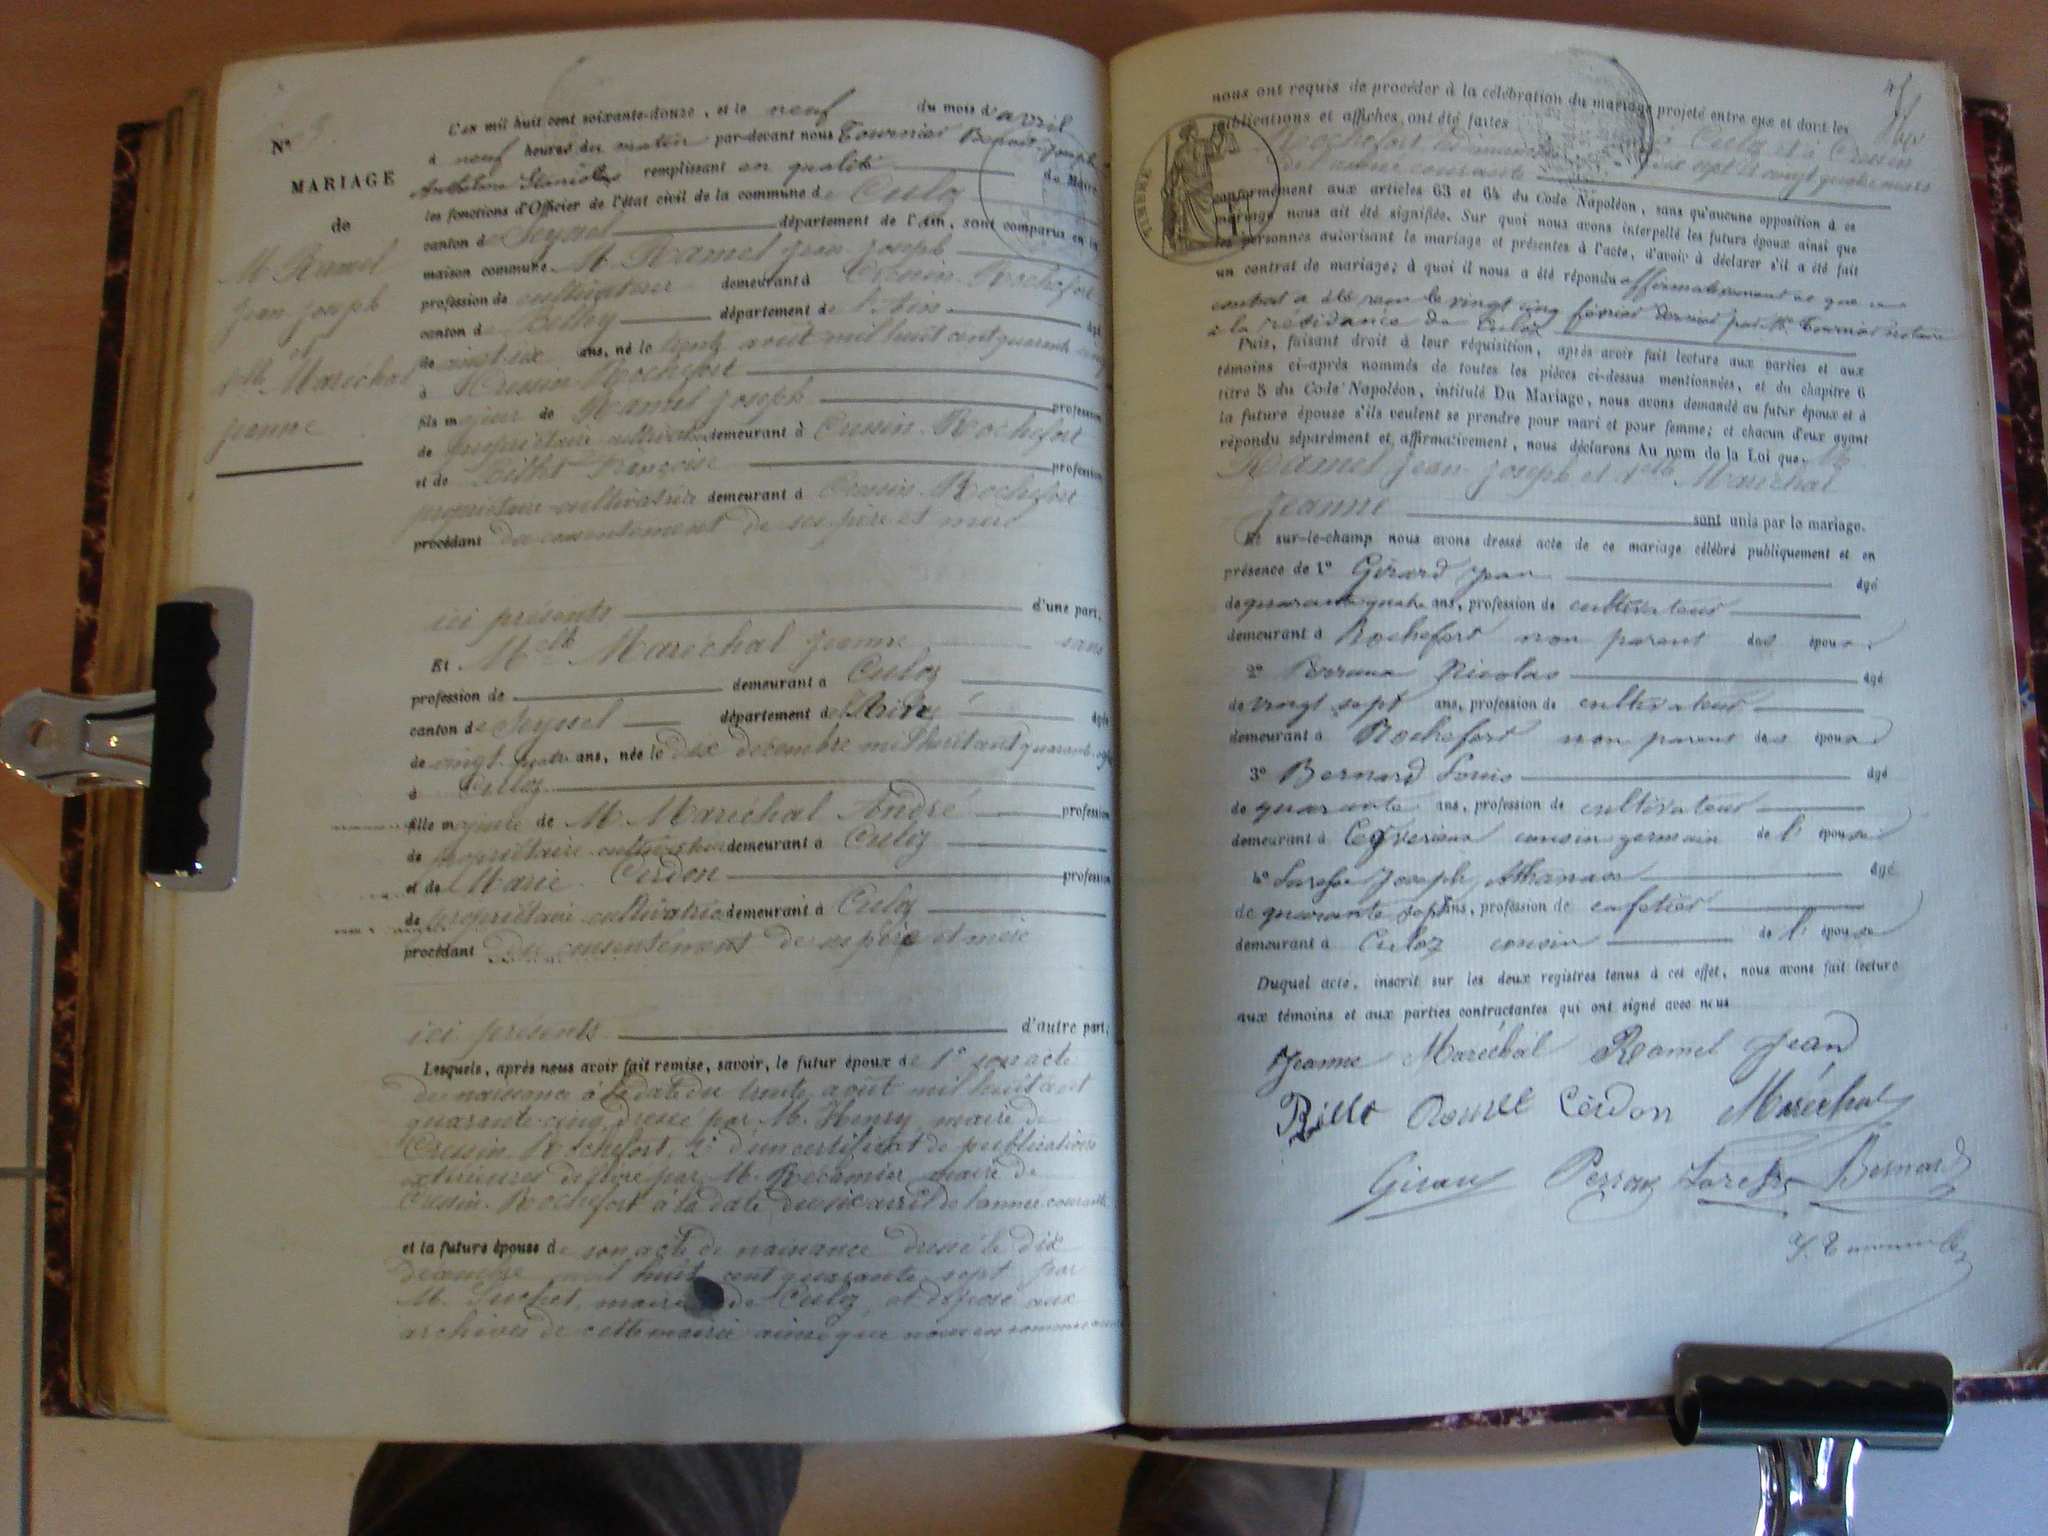 N° 3
MARIAGE
de
M. Ramel
Jean Joseph
et
Dlle Maréchal
Jeanne
L'an mil huit cent soixante-douze, et le neuf du mois d'avril
à neuf heures du matin par-devant nous Tournier Benoit Joseph
Anthelme Stanislas remplissant en qualité de Maire
les fonctions d'Officier de l'état civil de la commune de Culoz
canton de Seyssel département de l'Ain, sont comparus en la
maison commune M. Ramel Jean Joseph
profession de cultivateur demeurant à Cressin-Rochefort
canton de Belley département de l'Ain âgé
de vingt six ans, né le trente août mil huit cent quarante cinq
à Cressin-Rochefort
fils majeur de Ramel Joseph profession
de propriétaire cultivateur demeurant à Cressin-Rochefort
et de Françoise profession
propriétaire-cultivatrice demeurant à Cressin-Rochefort
procédant du consentement de ses père et mère
ici présents d'une part,
Et Melle Maréchal Jeanne sans
profession de demeurant à Culoz
canton de Seyssel département de l'Ain âgée
de vingt-quatre ans, née le dix décembre mil huit cent quarante sept
à Culoz
fille majeure de M. Maréchal André profession
de propriétaire-cultivateur demeurant à Culoz
et de Marie Cerdon profession
de propriétaire-cultivatrice demeurant à Culoz
procédant du consentement de ses père et mère
ici présents d'autre part;
Lesquels, après nous avoir fait remise, savoir, le futur époux de 1° son acte
de naissance à la date du trente août mil huit cent
quarante-cinq dressé par M. Henry, maire de
Cressin-Rochefort, 2° d'un certificat de publications
extérieures délivré par M. Récamier, maire de
Cressin-Rochefort à la date du six avril de l'année courante
et la future épouse de son acte de naissance dressé le dix
décembre mil huit cent quarante-sept par
M. Suchet, maire de Culoz, et déposé aux
archives de cette mairie ainsi que nous en sommes
nous ont requis de procéder à la célébration du mariage projeté entre eux et dont les
publications et affiches ont été faites à Culoz et à Cressin
Rochefort les dimanches dix sept et vingt quatre mars
de l'année courante
TIMBRE
conformément aux articles 63 et 64 du Code Napoléon, sans qu'aucune opposition à ce
mariage nous ait été signifiée. Sur quoi nous avons interpellé les futurs époux ainsi que
les personnes autorisant le mariage et présentes à l'acte, d'avoir à déclarer s'il a été fait
un contrat de mariage; à quoi il nous a été répondu affirmativement et que ce
contrat a été reçu le vingt cinq février dernier par M. Tournier notaire
à la résidence de Culoz
Puis, faisant droit à leur réquisition, après avoir fait lecture aux parties et aux
témoins ci-après nommés de toutes les pièces ci-dessus mentionnées, et du chapitre 6
titre 5 du Code Napoléon, intitulé Du Mariage, nous avons demandé au futur époux et à
la future épouse s'ils veulent se prendre pour mari et pour femme; et chacun d'eux ayant
répondu séparément et affirmativement, nous déclarons Au nom de la Loi que M.
Ramel Jean-Joseph et Delle Maréchal
Jeanne sont unis par le mariage.
Et sur-le-champ nous avons dressé acte de ce mariage célébré publiquement et en
présence de 1° Girard Jean âgé
de quarante quatre ans, profession de cultivateur
demeurant à Rochefort non parent des époux.
2° Perraux Nicolas âgé
de vingt sept ans, profession de cultivateur
demeurant à Rochefort non parent des époux
3° Bernard Louis âgé
de quarante ans, profession de cultivateur
demeurant à Ceyzérieux cousin germain de l'épouse
4° Joseph Athanase âgé
de quarante sept ans, profession de cafetier
demeurant à Culoz cousin de l'épouse
Duquel acte, inscrit sur les deux registres tenus à cet effet, nous avons fait lecture
aux témoins et aux parties contractantes qui ont signé avec nous
Jeanne Maréchal Ramel Jean
Cerdon Maréchal
Girard Bernard